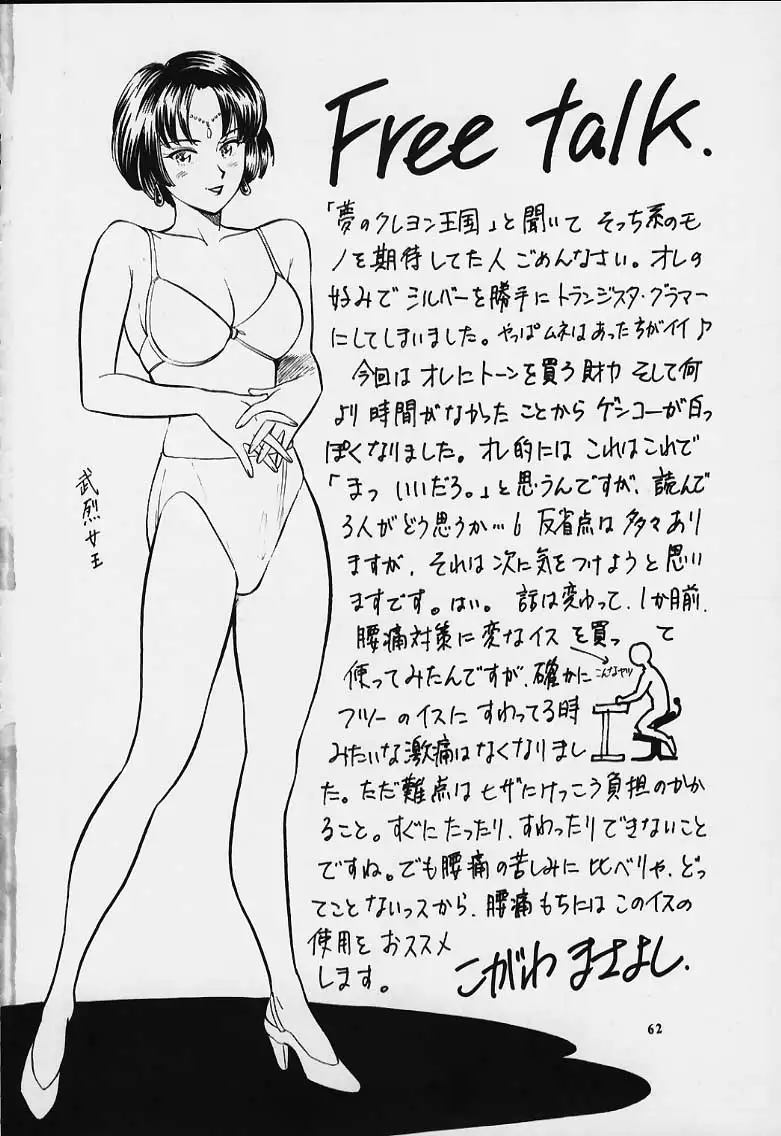 Free talk.
「夢のクレヨン王国」と聞いて そっち系のモ
ノを期待してた人 ごめんなさい。オレの
好みで シルバーを勝手に トランジスタ・グラマー
にしてしまいました。やっぱムネはあったちがイイ♪
今回は オレにトーンを買う財力 そして何
より 時間がなかった ことから ゲンコーが白っ
ぽくなりました。オレ的には これはこれで
「まっ いいだろ。」と思うんですが、読んで
る人がどう思うか…。反省点は 多々あり
ますが、それは次に気をつけようと思い
ますです。はい。 話は変ゆって、1か月前、
腰痛対策に変なイス を買っ て
使ってみたんですが、確かに
こんなヤツ
フツーのイスに すわってる時
みたいな激痛はなくなりまし
た。ただ難点は ヒザにけっこう負担のかか
ること。すぐにたったり、すわったりできないこと
ですね。でも腰痛の苦しみに 比べりゃ、どっ
てことないっスから、腰痛もちには このイスの
使用を おススメ
します。
こがわ まさよし.
武烈女王
62